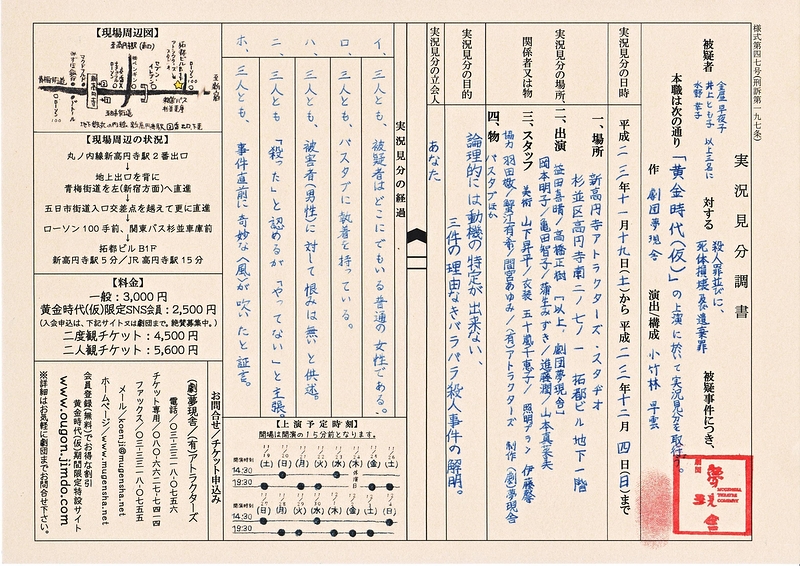 様式第四七号(刑訴第一九七条)
実況見分調書
被疑者
金屋早夜子
井上とも子
水野幸子
以上三名に
対する
殺人罪並びに、
死体損壊及び遺棄罪
被疑事件につき、
本職は次の通り「黄金時代(仮)」の上演に於いて実況見分を取行う。
作 劇団夢現舎 演出/構成 小竹林早雲
劇団
夢現舎
MUGENSHA
THEATRE
COMPANY
実況見分の日時
平成二三年十一月十九日(土)から平成二三年十二月四日(日)まで
実況見分の場所、
関係者又は物
一、場所
新高円寺アトラクターズ・スタヂオ
杉並区高円寺南二ノ七ノ一 拓都ビル地下一階
二、出演
笹田喜晴/高橋正樹 [以上、劇団夢現舎]
岡本明子/亀田智子/蒲生みずき/進藤潤/山本真菜美
三、スタッフ
美術 山下昇平/衣装 五十嵐千恵子/照明プラン 伊藤馨
協力 羽田敬/蟹江有希/間宮あゆみ/(有)アトラクターズ 制作 (劇)夢現舎
四、物
パスタほか
実況見分の目的
論理的には動機の特定が出来ない、
三件の理由なきバラバラ殺人事件の解明。
実況見分の立会人
あなた
実況見分の経過
イ、三人とも、被疑者はどこにでもいる普通の女性である。
ロ、三人とも、パスタに執着を持っている。
ハ、三人とも、被害者(男性)に対して恨みは無いと供述。
ニ、三人とも、「殺った」と認めるが「やってない」と主張。
ホ、三人とも、事件直前に奇妙な〈風〉が吹いたと証言。
【上演予定時刻】
開場は開演の15分前となります。
開演時刻
(土) (日) (月) (火) (水) (木) (金) (土)
14:30
19:30
休演日
開演時刻
(日) (月) (火) (水) (木) (金) (土) (日)
14:30
19:30
【現場周辺図】
【現場周辺の状況】
丸ノ内線新高円寺駅2番出口
↓
地上出口を背に
青梅街道を左(新宿方面)へ直進
↓
五日市街道入口交差点を越えて更に直進
↓
ローソン100手前、関東バス杉並車庫前
↓
拓都ビルB1F
新高円寺駅5分/JR高円寺駅15分
【料金】
一般:3,000円
黄金時代(仮)限定SNS会員:2,500円
(入会申込は、下記サイト又は劇団まで。絶賛募集中。)
二度観チケット:4,500円
二人観チケット:5,600円
お問合せ/チケット申込み
(劇)夢現舎/(有)アトラクターズ
電話/〇三-三三一八-〇七五六
チケット専用/〇八〇-六六二七-七四一四
ファックス/〇三-三三一八-〇七五五
メール/koenji@mugensha.net
ホームページ/www.mugensha.net
会員登録(無料)でお得な割引
黄金時代(仮)期間限定特設サイト
www.ougon.jindo.com
※詳細はお気軽に劇団までお問合せ下さい。